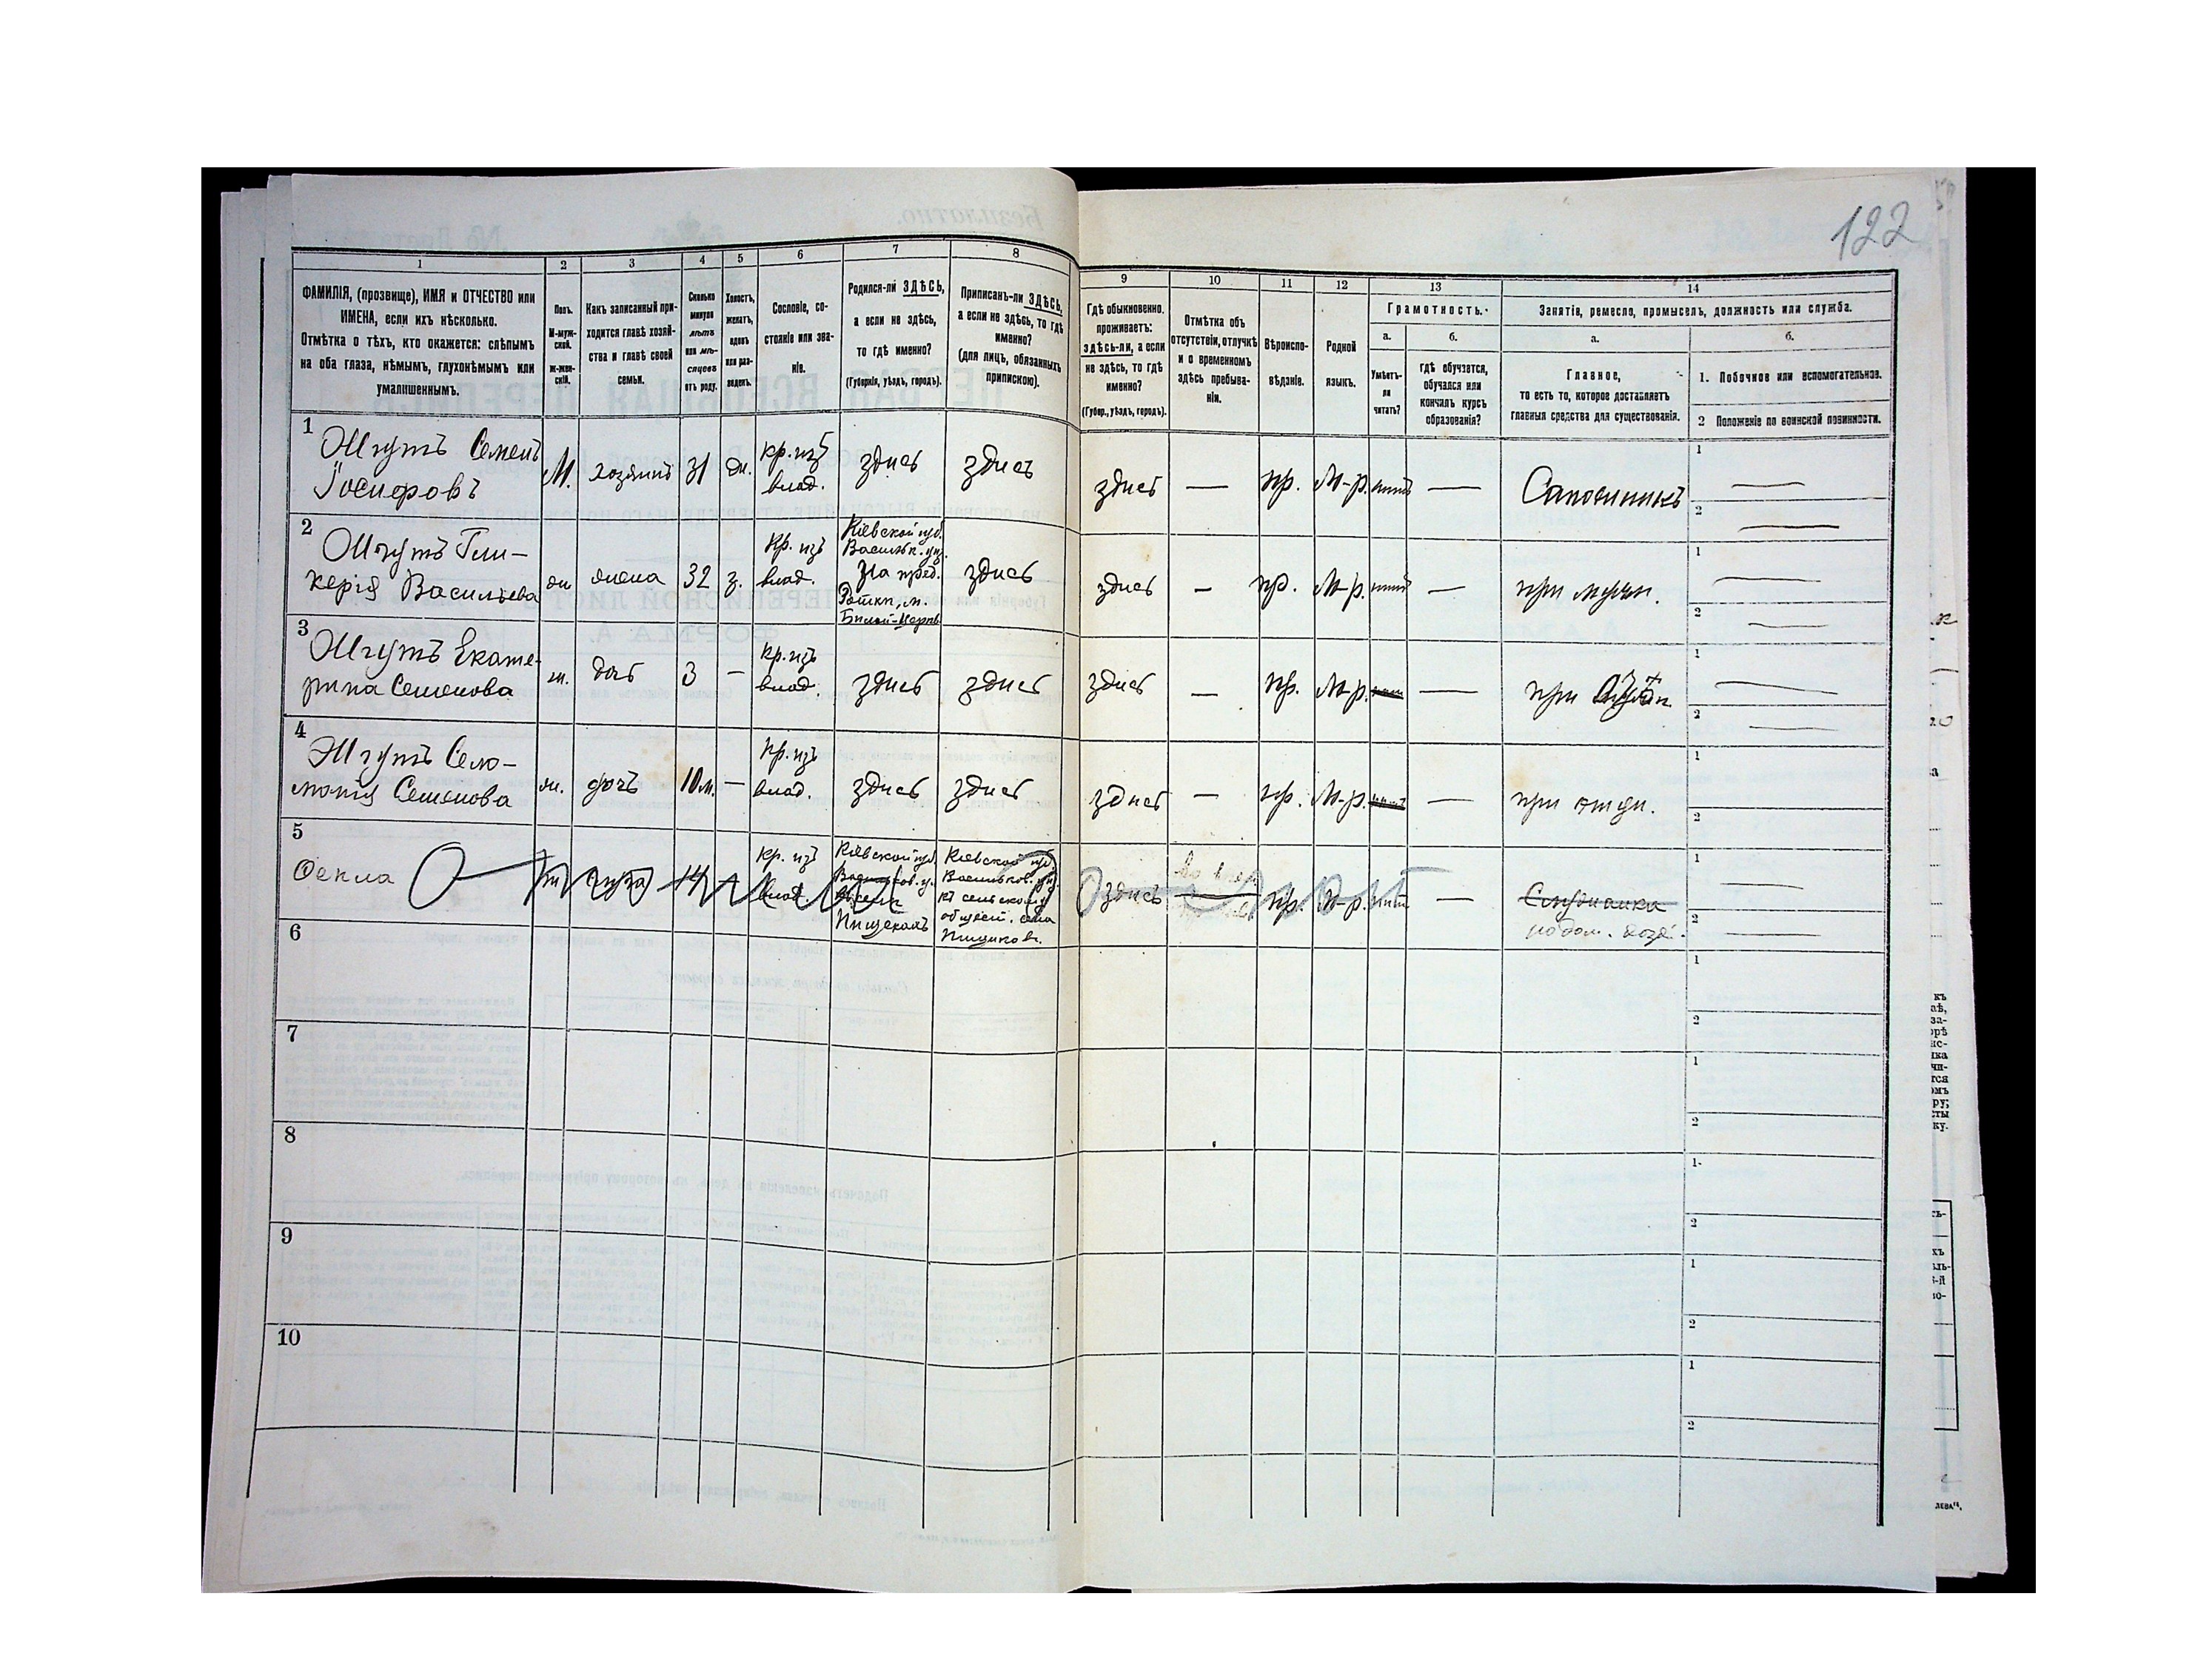 122
1
2
3
4
5
6
7
8
9
10
11
12
13
14
ФАМИЛІЯ, (прозвище), ИМЯ и ОТЧЕСТВО или
ИМЕНА, если ихъ нѣсколько.
Отмѣтка о тѣхъ, кто окажется: слѣпымъ
на оба глаза, нѣмымъ, глухонѣмымъ или
умалишеннымъ.
Полъ.
М-муж-
ской.
ж-жен-
скій.
Какъ записанный при-
ходится главѣ хозяй-
ства и главѣ своей
семьи.
Сколько
минуло
лѣтъ
или мѣ-
сяцевъ
отъ роду.
Холостъ,
женатъ,
вдовъ
или раз-
веденъ.
Сословіе, со-
стояніе или зва-
ніе.
Родился-ли ЗДѢСЬ,
а если не здѣсь,
то гдѣ именно?
(Губернія, уѣздъ, городъ).
Приписанъ-ли ЗДѢСЬ,
а если не здѣсь, то гдѣ
именно?
(для лицъ, обязанныхъ
припискою).
Гдѣ обыкновенно.
проживаетъ:
здѣсь-ли, а если
не здѣсь, то гдѣ
именно?
(Губер., уѣздъ, городъ).
Отмѣтка объ
отсутствіи, отлучкѣ
и о временномъ
здѣсь пребыва-
ніи.
Вѣроиспо-
вѣданіе.
Родной
языкъ.
Грамотность.
а.
Умѣетъ-
ли
читать?
б.
гдѣ обучается,
обучался или
кончилъ курсъ
образованія?
Занятія, ремесло, промыселъ, должность или служба.
а.
Главное,
то есть то, которое доставляетъ
главныя средства для существованія.
б.
1. Побочное или вспомогательное.
2 Положеніе по воинской повинности.
1
Жгутъ Семенъ
Іосифовъ
М.
хозяинъ
31
ж.
кр. изъ
влад.
здѣсь
здѣсь
здѣсь
—
пр.
М-р.
нѣтъ
—
Сапожникъ
1 —
2 —
2
Жгутъ Гли-
керія Васильева
ж.
жена
32
з.
кр. изъ
влад.
Кіевской губ.
Васильк. уѣз.
На пред.
м.
Бѣлой-Церкв.
здѣсь
здѣсь
—
пр.
М-р.
нѣтъ
—
при мужѣ.
1 —
2 —
3
Жгутъ Екате-
рина Семенова
ж.
дочь
3
—
кр. изъ
влад.
здѣсь
здѣсь
здѣсь
—
пр.
М-р.
нѣтъ
—
при
1 —
2 —
4
Жгутъ Соло-
монія Семенова
ж.
дочь
10 м.
—
кр. изъ
влад.
здѣсь
здѣсь
здѣсь
—
пр.
М-р.
нѣтъ
—
при отцѣ.
1
2
5
Ѳекла
14
кр. изъ
влад.
Кіевской губ.
Васильков. у.
Кіевской губ.
Васильков. уѣз.
къ сельскому
общест. села
Пищиков.
здѣсь
пр.
М-р.
нѣтъ
—
Служанка
1 —
2 —
6
1
2
7
1
2
8
1
2
9
1
2
10
1
2